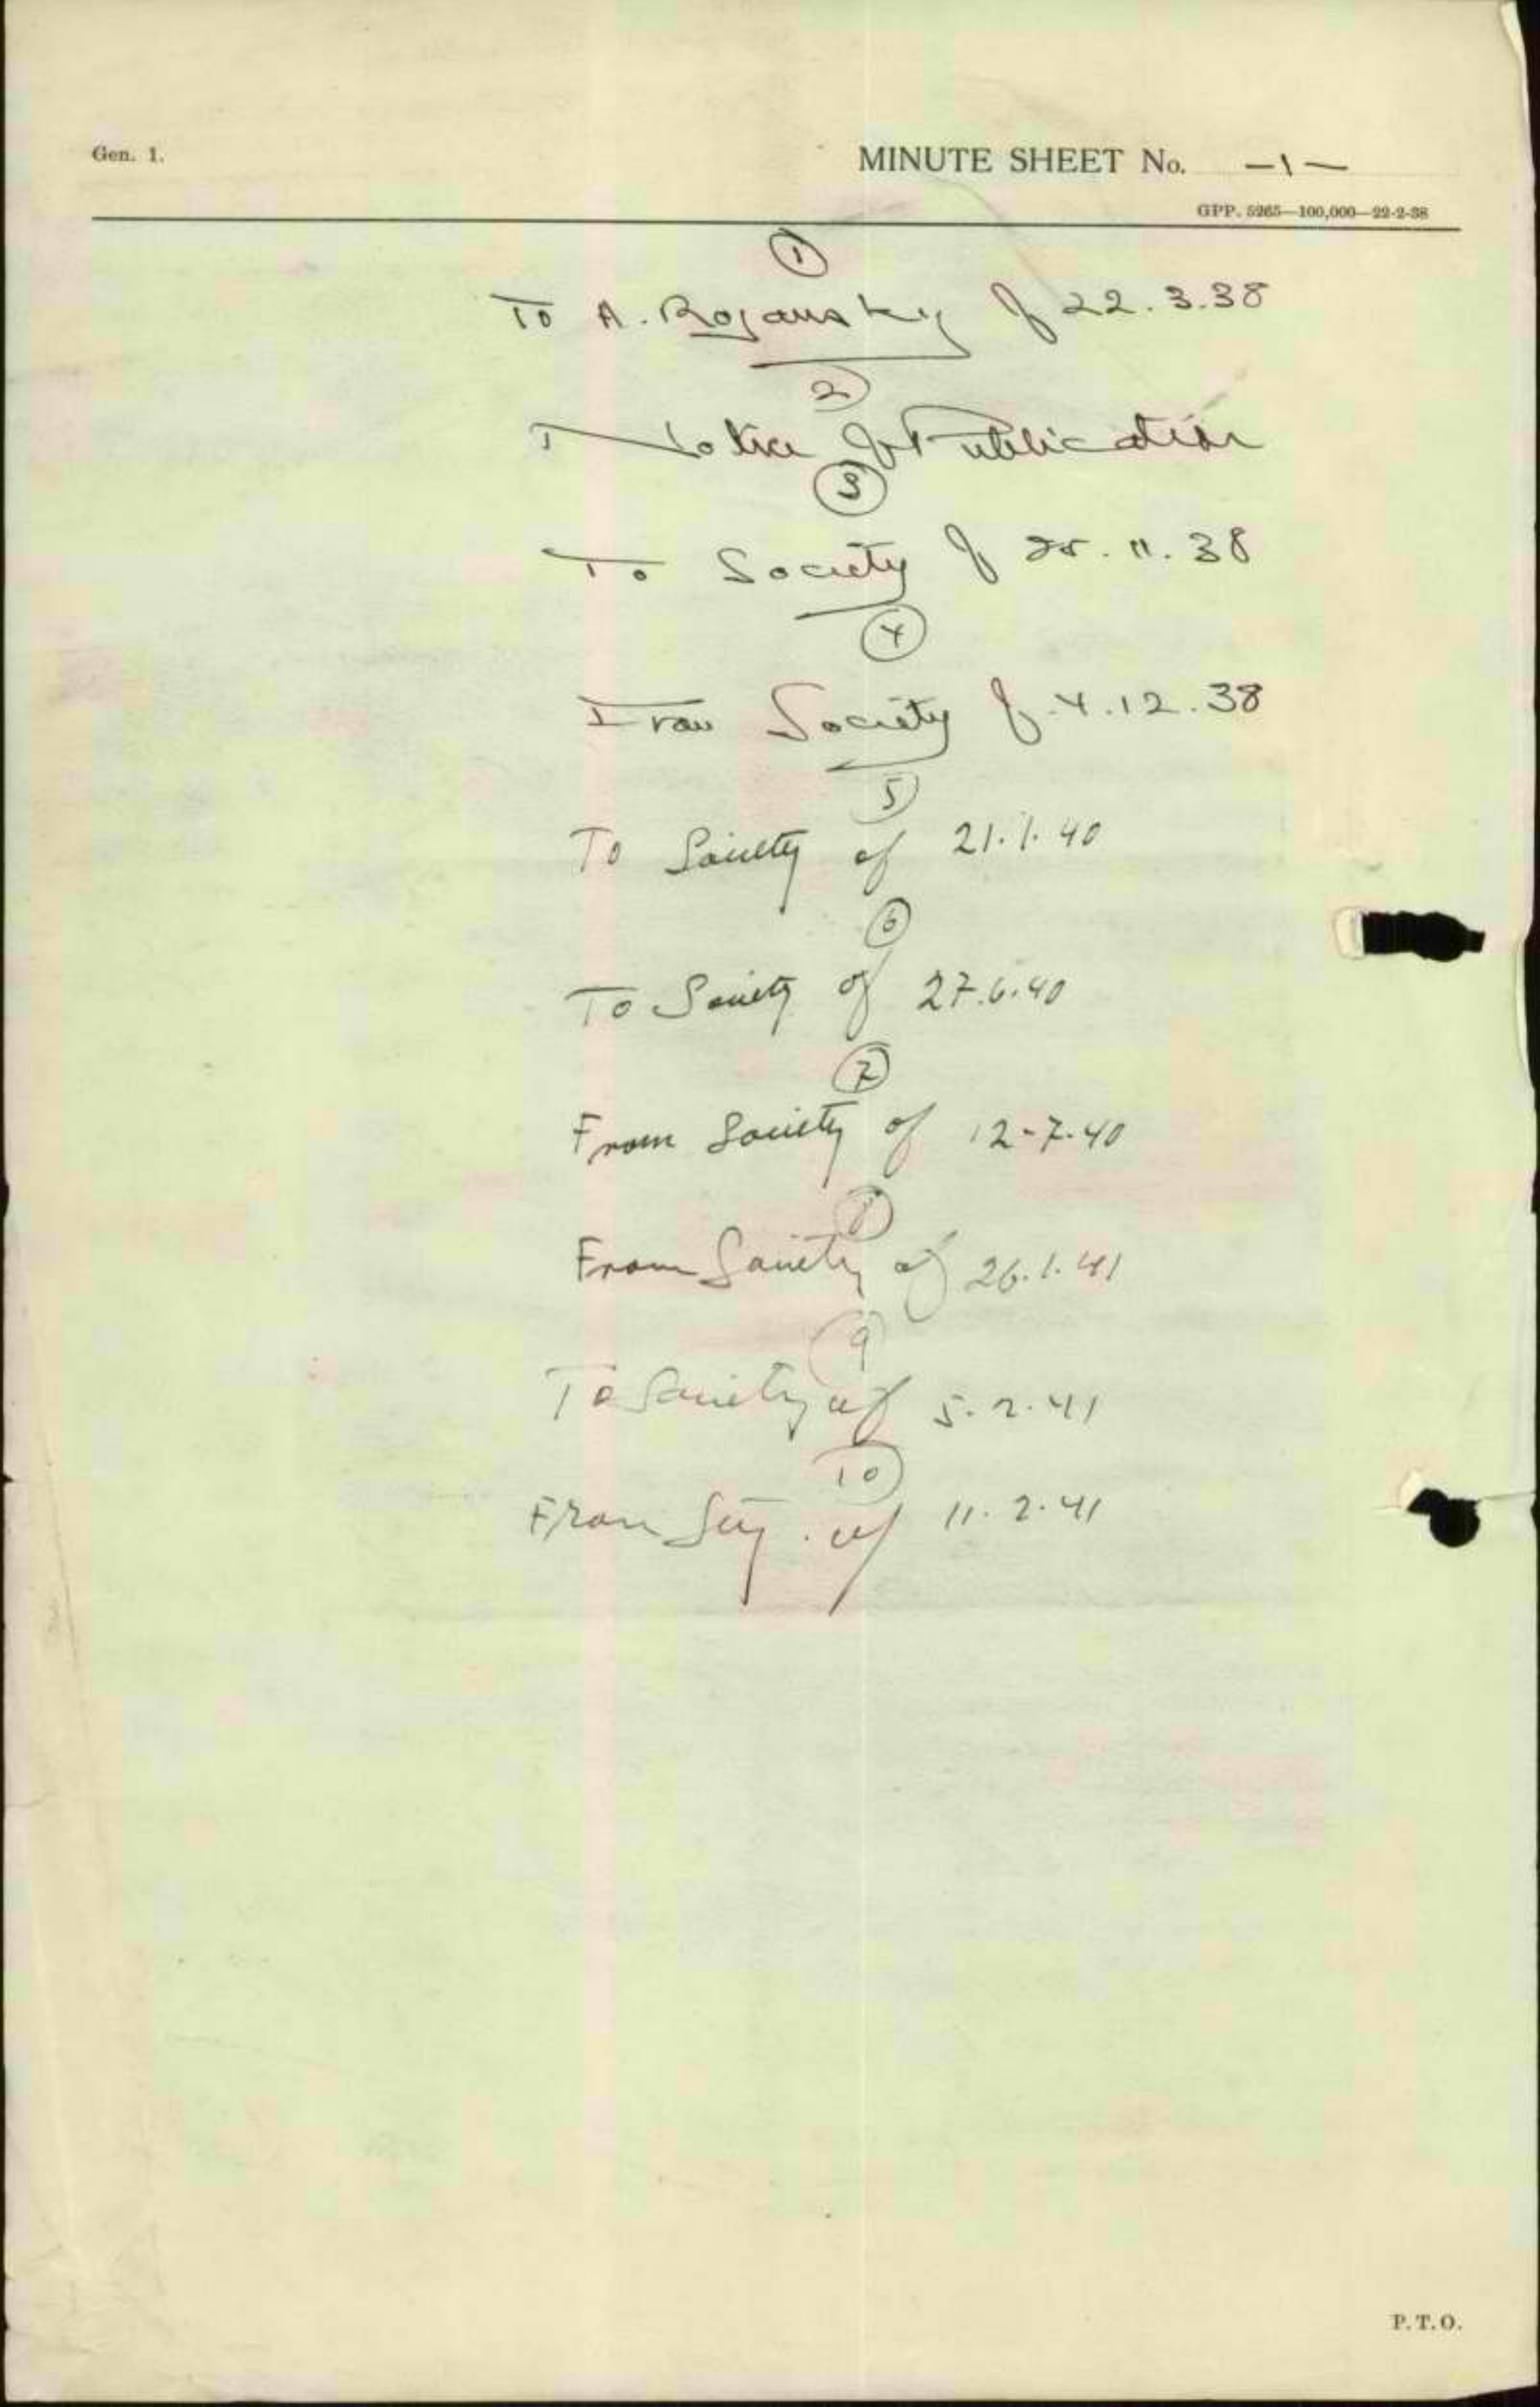 Gen. 1.
MINUTE SHEET No. —1—
GPP. 5265—100,000—22-2-38
1
To A. Rojansky of 22.3.38
2
Notice of Publication
3
To Society of 25.11.38
4
From Society of 4.12.38
5
To Society of 21.1.40
6
To Society of 27.6.40
7
From Society of 12-7-40
8
From Society of 26.1.41
9
To Society of 5.2.41
10
From Sty. of 11.2.41
P.T.O.